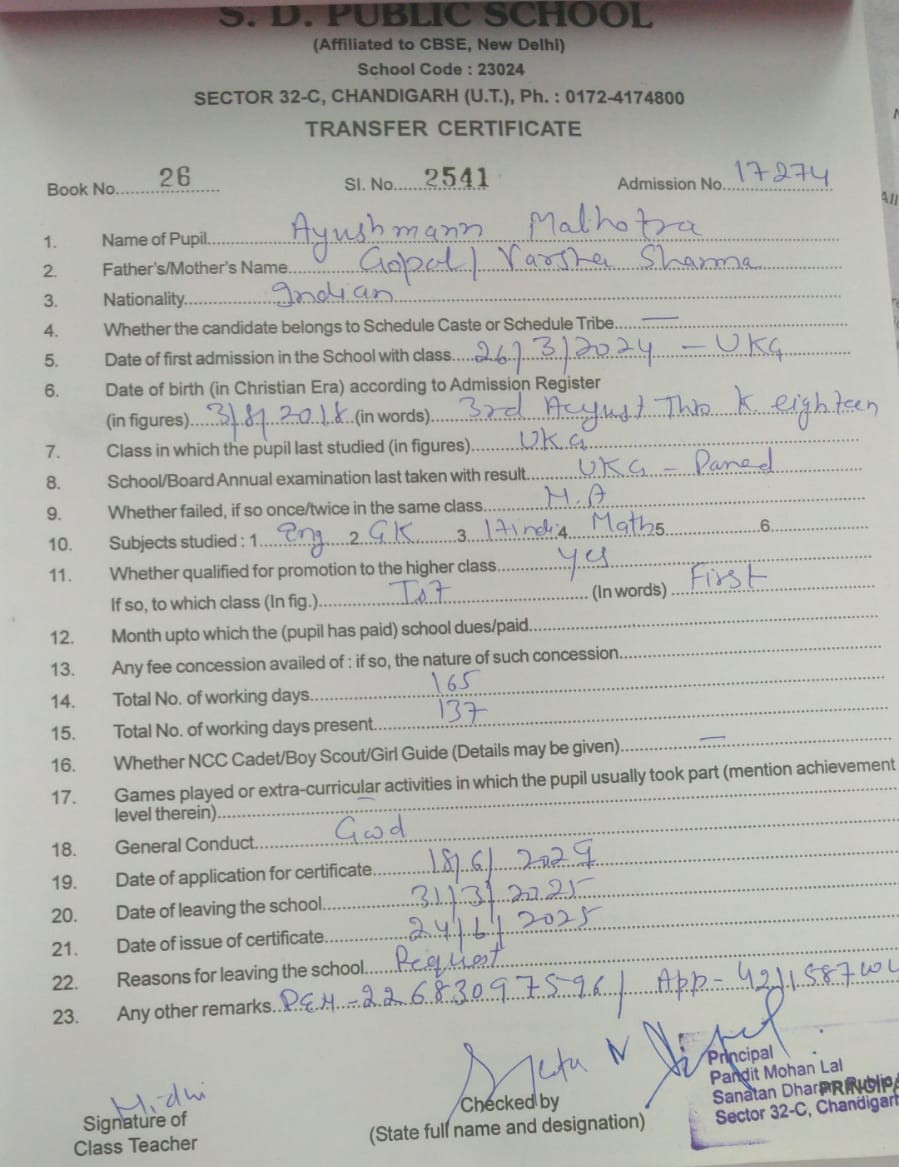 S. D. PUBLIC SCHOOL
(Affiliated to CBSE, New Delhi)
School Code : 23024
SECTOR 32-C, CHANDIGARH (U.T.), Ph. : 0172-4174800
TRANSFER CERTIFICATE
Book No. 26 Sl. No. 2541 Admission No. 17274
1. Name of Pupil Ayushmann Malhotra
2. Father's/Mother's Name Gopal / Varsha Sharma
3. Nationality Indian
4. Whether the candidate belongs to Schedule Caste or Schedule Tribe —
5. Date of first admission in the School with class 26/3/2024 - UKG
6. Date of birth (in Christian Era) according to Admission Register
(in figures) 3/8/2018 (in words) 3rd August Two K eighteen
7. Class in which the pupil last studied (in figures) UKG
8. School/Board Annual examination last taken with result UKG - Passed
9. Whether failed, if so once/twice in the same class N.A
10. Subjects studied : 1 Eng 2 GK 3. Hindi 4. Math 5 6.
11. Whether qualified for promotion to the higher class Yes
If so, to which class (In fig.) (In words) First
12. Month upto which the (pupil has paid) school dues/paid
13. Any fee concession availed of : if so, the nature of such concession
14. Total No. of working days 165
15. Total No. of working days present 137
16. Whether NCC Cadet/Boy Scout/Girl Guide (Details may be given) —
17. Games played or extra-curricular activities in which the pupil usually took part (mention achievement
level therein) —
18. General Conduct Good
19. Date of application for certificate
20. Date of leaving the school 31/3/2025
21. Date of issue of certificate 24/6/2025
22. Reasons for leaving the school Request
23. Any other remarks PEN - 22683097596 / App -
Nidhi
Signature of
Class Teacher
Checked by
(State full name and designation)
Principal
Pandit Mohan Lal
Sanatan Dharm Public
PRINCIPA
Sector 32-C, Chandigarh